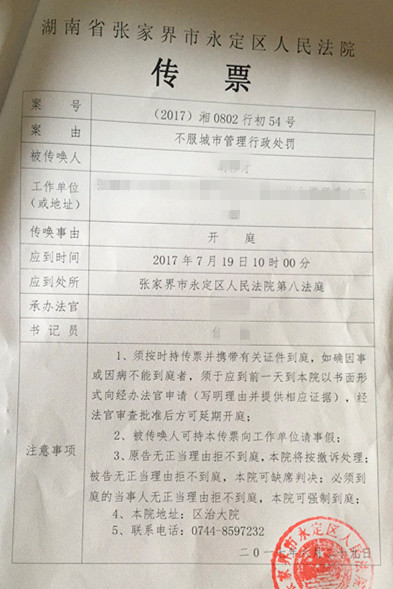 湖南省张家界市永定区人民法院
传票
案 号 (2017) 湘 0802 行初 54 号
案 由 不服城市管理行政处罚
被传唤人
工作单位
(或地址)
传唤事由 开 庭
应到时间 2017 年 7 月 19 日 10 时 00 分
应到处所 张家界市永定区人民法院第八法庭
承办法官
书 记 员
注意事项
1、须按时持传票并携带有关证件到庭，如确因事
或因病不能到庭者，须于应到前一天到本院以书面形
式向经办法官申请（写明理由并提供相应证据），经
法官审查批准后方可延期开庭；
2、被传唤人可持本传票向工作单位请事假；
3、原告无正当理由拒不到庭，本院将按撤诉处理；
被告无正当理由拒不到庭，本院可缺席判决；必须到
庭的当事人无正当理由拒不到庭，本院可强制到庭；
4、本院地址：区治大院
5、联系电话：0744-8597232
二〇一七年六月二十九日
张家界市永定区人民法院